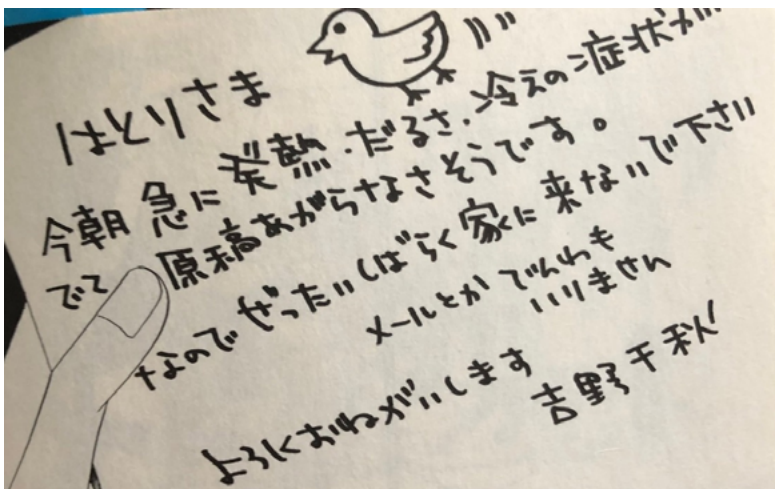 はとりさま
今朝 急に 発熱・だるさ・冷えの症状が
でて 原稿あがらなさそうです。
なので ぜったいしばらく家に来ないで下さい
メールとか でんわも
いりません
よろしくおねがいします
吉野千秋